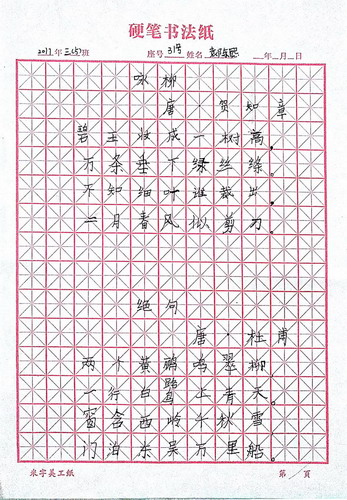 硬笔书法纸
2017年三(5)班 座号31号 姓名 年 月 日
咏柳
唐·贺知章
碧玉妆成一树高,
万条垂下绿丝绦。
不知细叶谁裁出,
二月春风似剪刀。
绝句
唐·杜甫
两个黄鹂鸣翠柳,
一行白鹭上青天。
窗含西岭千秋雪
门泊东吴万里船。
米字吴工纸
第 页